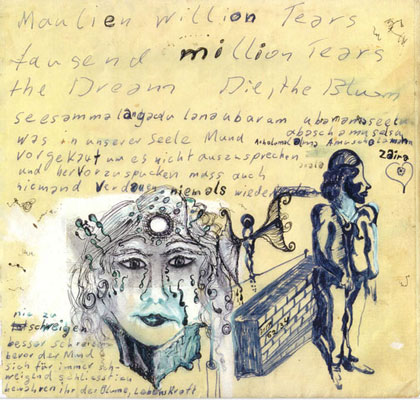 Maulien willion Tears
tausend million Tears
the Dream Die, the Blum
seesammalangadu lanaubaram
was in unserer Seele Mund
vorgekaut um es nicht auszusprechen
und hervorzuspucken muss auch
niemand verdauen niemals
zaira
nie zu
schweigen
besser schreien
bevor der Mund
sich für immer sch-
weigend schliesst
bewahren ihr der Blume, Lebenskraft